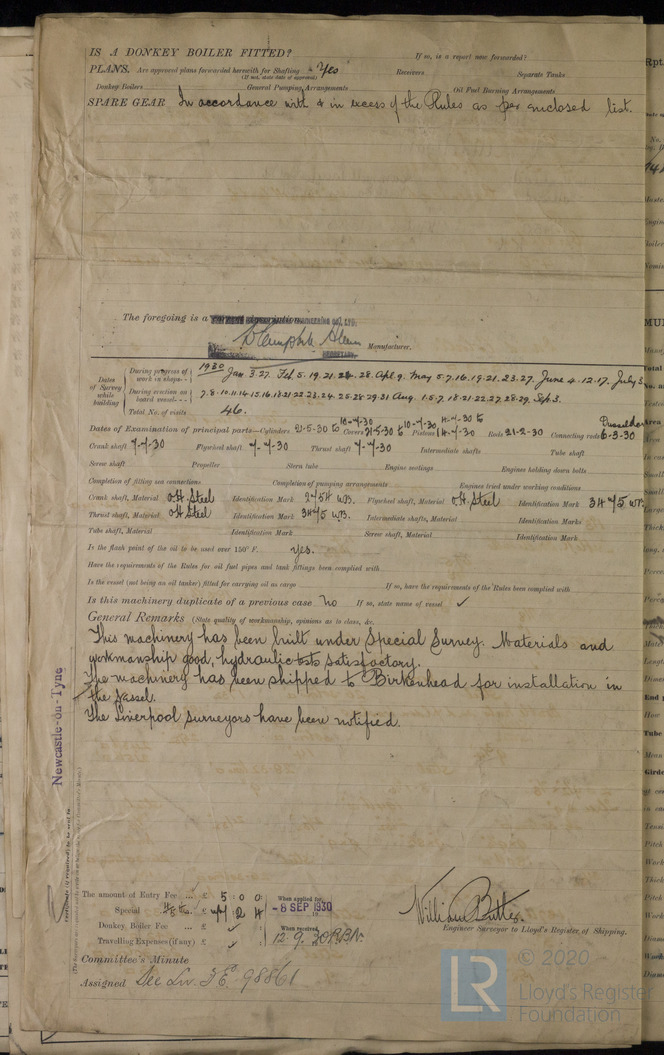 IS A DONKEY BOILER FITTED? If so, is a report now forwarded?
PLANS. Are approved plans forwarded herewith for Shafting Yes Receivers Separate Tanks
(If not, state date of approval)
Donkey Boilers General Pumping Arrangements Oil Fuel Burning Arrangements
SPARE GEAR In accordance with & in excess of the Rules as per enclosed list.
The foregoing is a
Manufacturer.
Dates of Survey while building
During progress of work in shops-- 1930 Jan 3. 27. Feb 5. 19. 21. 28. Apl. 9. May 5. 7. 16. 19. 21. 23. 27. June 4. 12. 17. July 3
During erection on board vessel--- 7. 8. 10. 11. 14. 15. 16. 18. 21. 22. 23. 24. 25. 28. 29. 31 Aug. 1. 5. 7. 18. 21. 22. 27. 28. 29. Sep. 3.
Total No. of visits 46.
Dates of Examination of principal parts—Cylinders 21-5-30 to 10-7-30 Covers 21-5-30 to 10-7-30 Pistons to 14-7-30 Rods 21-2-30 Connecting rods 6-3-30
Crank shaft 7-7-30 Flywheel shaft 7-7-30 Thrust shaft 7-7-30 Intermediate shafts Tube shaft
Screw shaft Propeller Stern tube Engine seatings Engines holding down bolts
Completion of fitting sea connections Completion of pumping arrangements Engines tried under working conditions
Crank shaft, Material O.H. Steel Identification Mark W.B. Flywheel shaft, Material O.H. Steel Identification Mark 3475 W.B.
Thrust shaft, Material O.H. Steel Identification Mark 3475 W.B. Intermediate shafts, Material Identification Marks
Tube shaft, Material Identification Mark Screw shaft, Material Identification Mark
Is the flash point of the oil to be used over 150° F. yes.
Have the requirements of the Rules for oil fuel pipes and tank fittings been complied with
Is the vessel (not being an oil tanker) fitted for carrying oil as cargo If so, have the requirements of the Rules been complied with
Is this machinery duplicate of a previous case No If so, state name of vessel ✓
General Remarks (State quality of workmanship, opinions as to class, &c.
This machinery has been built under Special Survey. Materials and
workmanship good, hydraulic tests satisfactory.
The machinery has been shipped to Birkenhead for installation in
the Vessel.
The Liverpool surveyors have been notified.
Newcastle-on-Tyne
The amount of Entry Fee ... £ 5 : 0 : 0 When applied for,
Special ... £ : 2 : 4 - 8 SEP 1930
Donkey Boiler Fee ... £ ✓ When received,
Travelling Expenses (if any) £ ✓ 12. 9. 30
William Butler.
Engineer Surveyor to Lloyd's Register of Shipping.
Committee's Minute
Assigned See Lv. F.E. 98861
LR © 2020
Lloyd's Register
Foundation